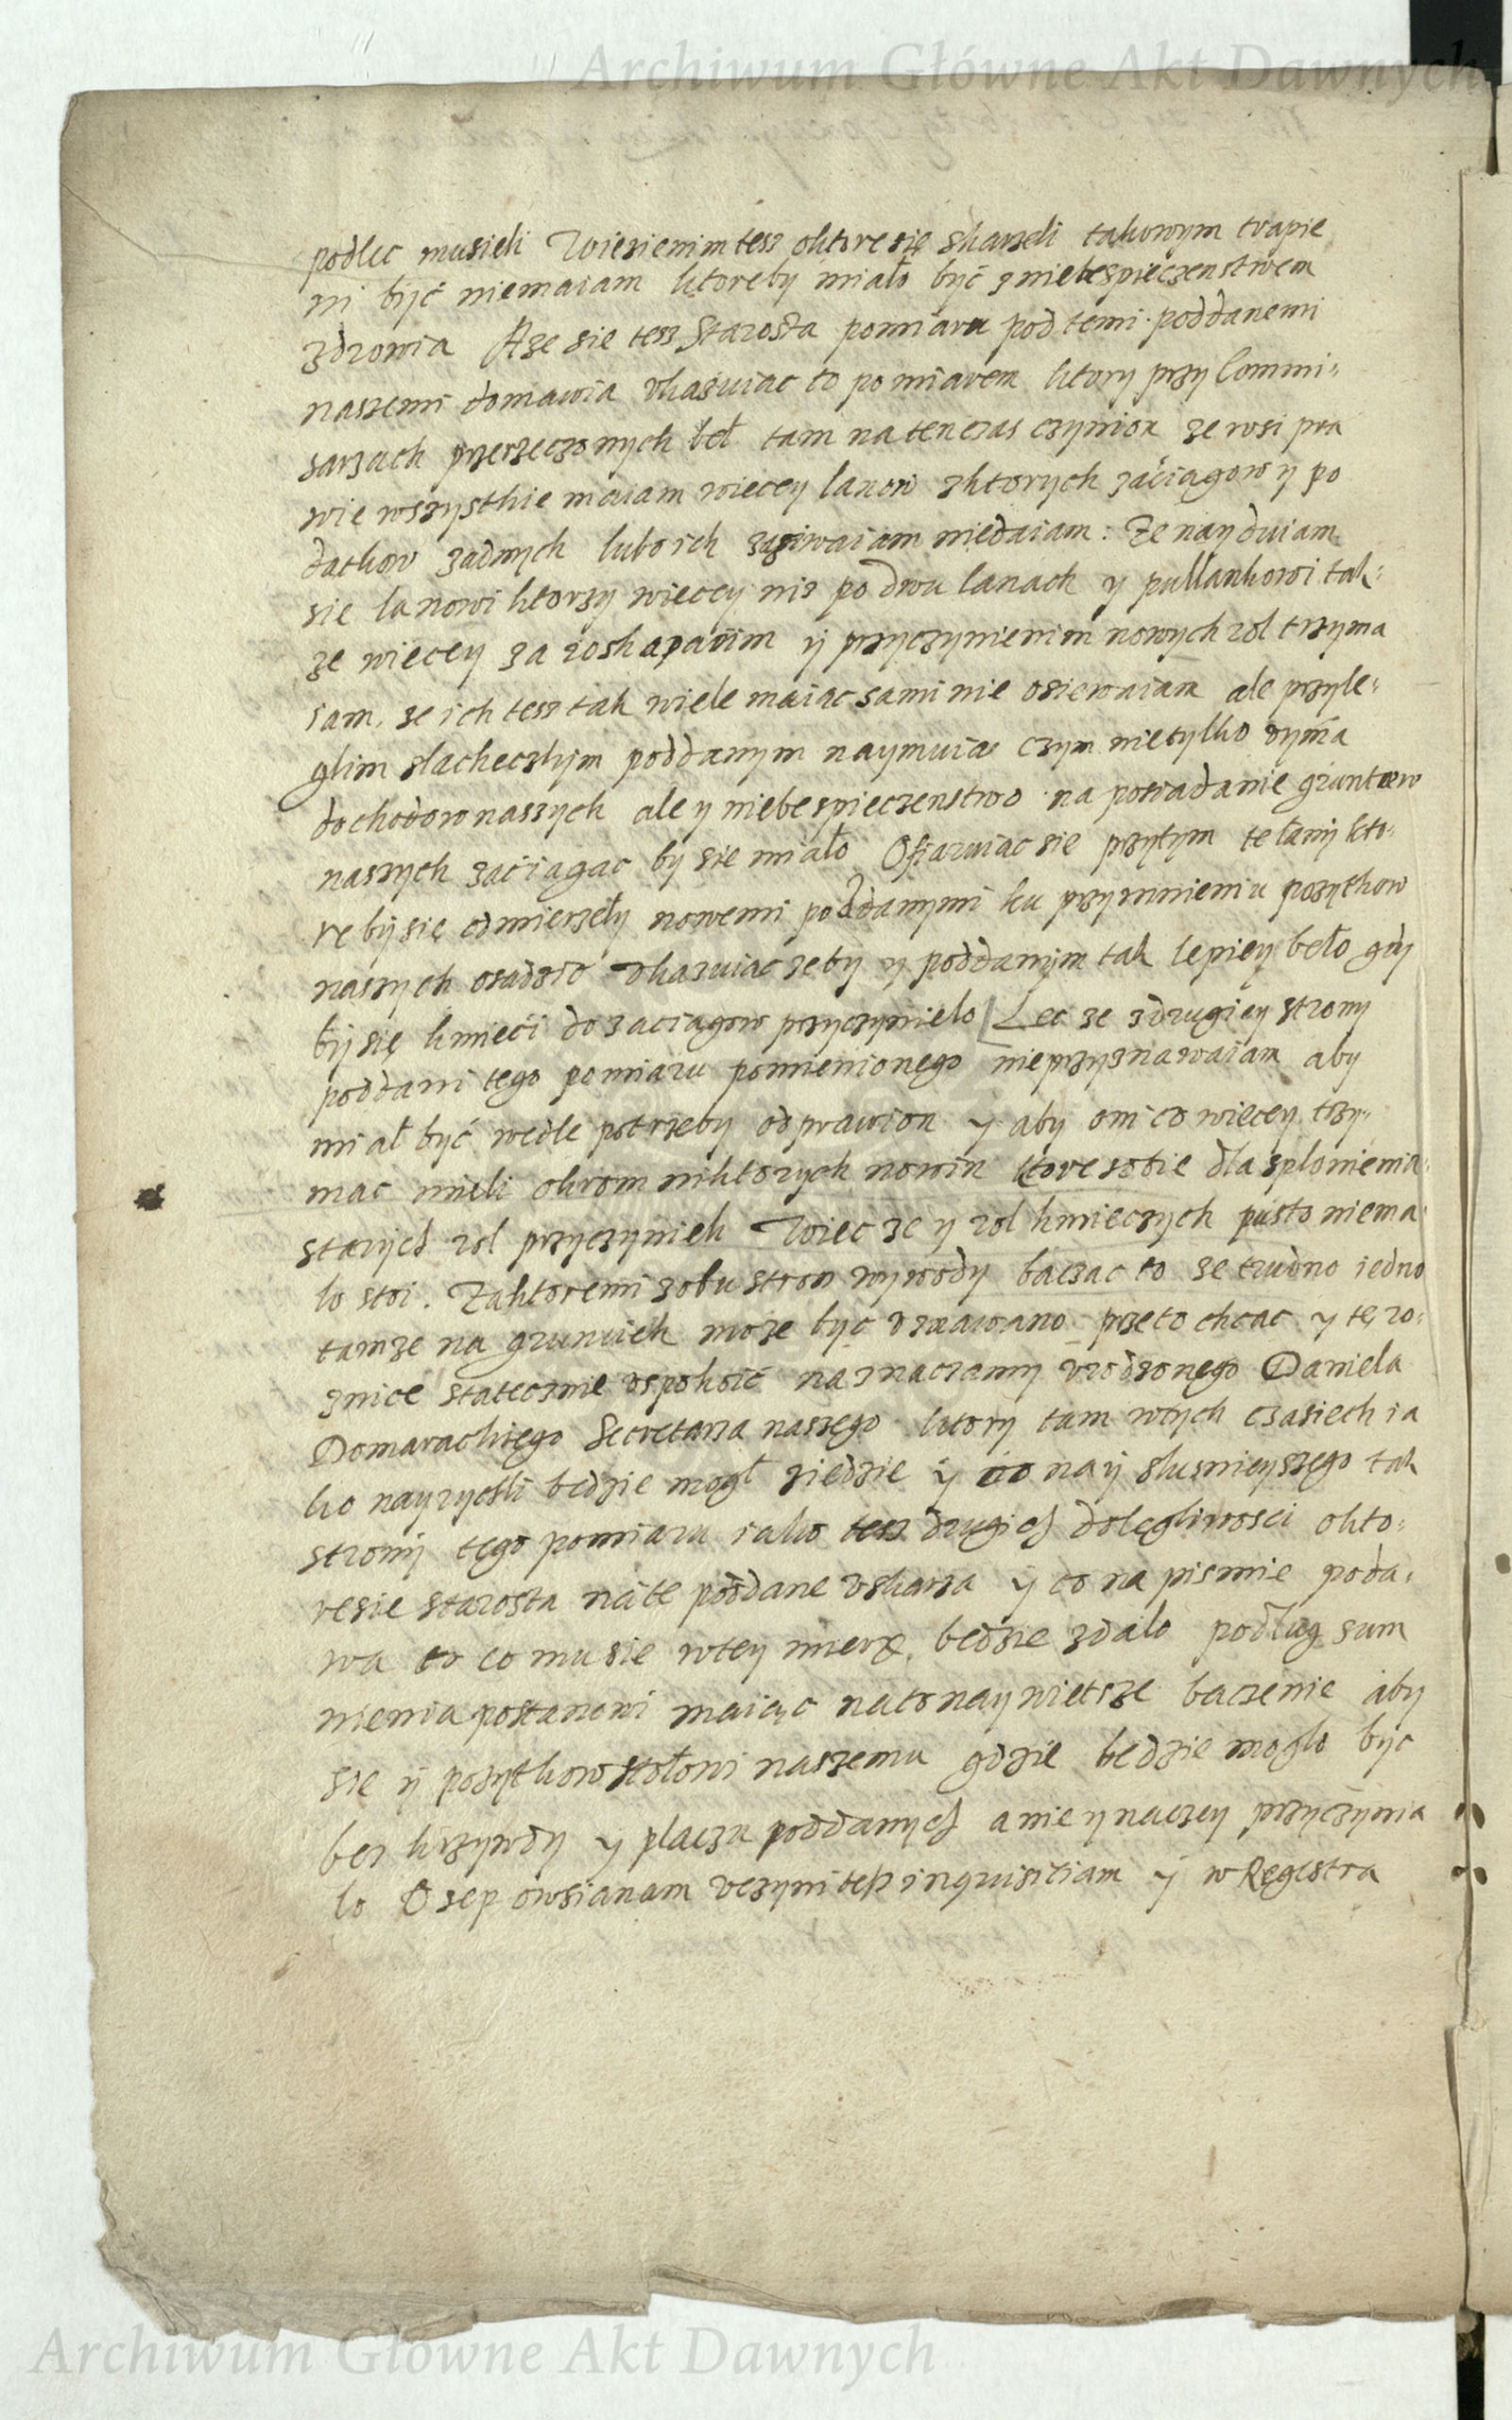 Archiwum Główne Akt Dawnych
podlec musieli Wiezienim tesz oktore się skarzeli takowym trapie
ni być niemaiam ktoreby miało być z niebespieczenstwem
zdrowia Aze sie tesz Starosta pomiaru pod temi poddanemi
naszemi domawia vkazuiac to pomiarem ktory przy Commi⸗
sarzach przerzeczonych beł tam na ten czas czynion ze wsi pra
wie wszystkie maiam wiecey lanow zktorych zaciagow y po
datkow zadnych lubo ich zaziwaiam niedaiam: Ze nayduiam
sie lanowi ktorzy wiecey niz po dwu lanach y pullankowi tak⸗
ze wiecey za roskopanim y przyczynienim nowych rol trzyma
iam, ze ich tesz tak wiele maiac sami nie osiewaiam ale przyle⸗
glim slacheczkim poddanym naymuia czym nietylko vyma
dochodow naszych ale y niebespieczenstwo na posiadanie gruntow
naszych zaciagac by sie miało Ofiaruiac sie przytym te łany kto⸗
re by się odmierzeły nowemi poddanymi ku przymnieniu pozytkow
naszych osadzić vkazuiac zeby y poddanym tak lepiey beło gdy
by się kmieci do zaciągow przyczynieło Lec ze zdrugiey strony
poddani tego pomiaru pomienionego nieprzyznawaiam aby
miał być wedle potrzeby odprawion y aby oni co wiecey trzy⸗
mac mieli okrom niktorych nowin ktore sobie dla splonienia
starych rol przyczynieli Wiec ze y rol kmieczych pusto niema
lo stoi. Zaktoremi zobu stron wywody baczac to ze trudno iedno
tamze na gruncieh moze być vznawano przeto chcac y tę ro⸗
znice statecznie vspokoić naznaczamy vrodzonego Daniela
Domarackiego Secretarza naszego ktory tam wtych czasiech ia
ko nayrychli bedzie mogł ziedzie y co nay slusnieyszego tak
strony tego pomiaru iako tesz drugich dolęgliwosci okto⸗
re sie starosta na te poddane vskarza y co na pismie poda⸗
wa co mu sie wtey mierze bedzie zdalo podług sum
nienia postanowi maiąc na to naywietsze baczenie aby
sie y pozytkow stołowi naszemu gdzie bedzie moglo być
bez krzywdy y placzu poddanych a nie ynaczey przyczynia
lo Osep owsianam vczyni tesz inquisitiam y w Regestra
Archiwum Główne Akt Dawnych